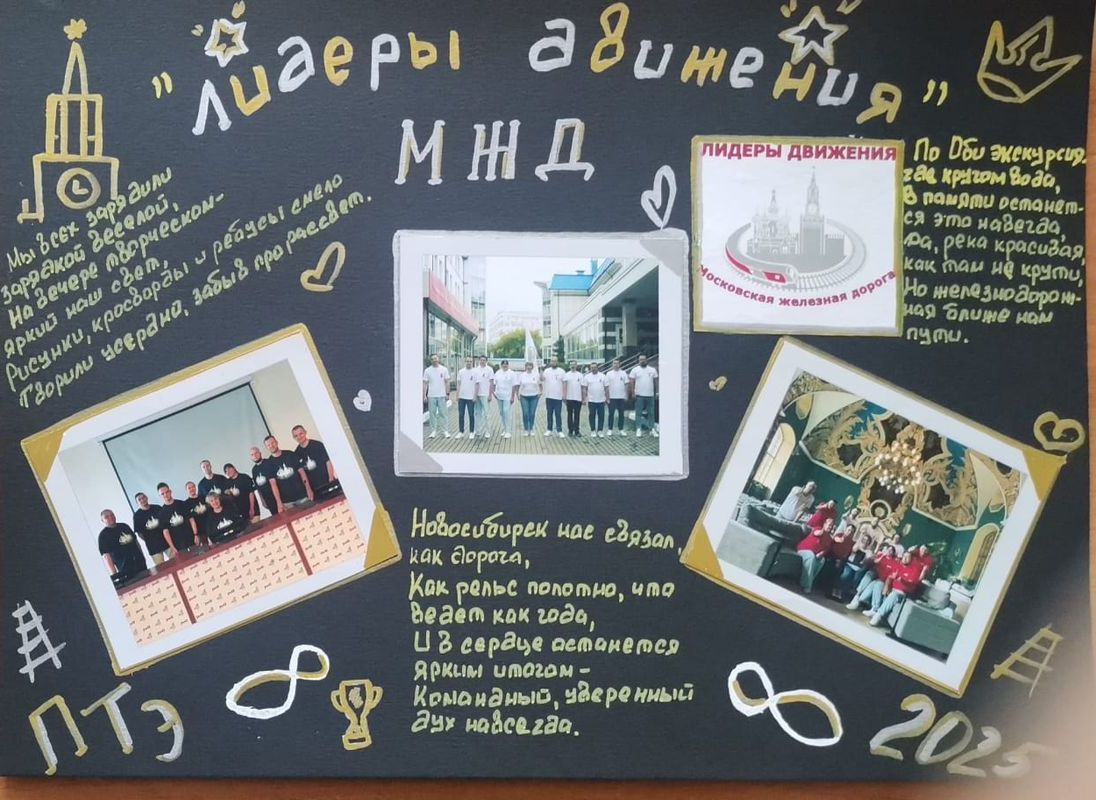 "Лидеры движения"
МЖД
Мы всех зарядили
зарядкой веселой,
На вечере творческом-
яркий наш свет,
Рисунки, кросворды и ребусы смело
Творили усердно, забыв про рассвет.
ЛИДЕРЫ ДВИЖЕНИЯ
Московская железная дорога
По Оби экскурсия,
где кругом вода,
В памяти останет-
ся это навсегда,
Да, река красивая,
как там не крути,
Но железнодорож-
ная ближе нам
пути.
Новосибирск нас связал,
как дорога,
Как рельс полотно, что
ведет как года,
И в сердце останется
ярким итогом-
Командный, уверенный
дух навсегда.
ПТЭ
2025